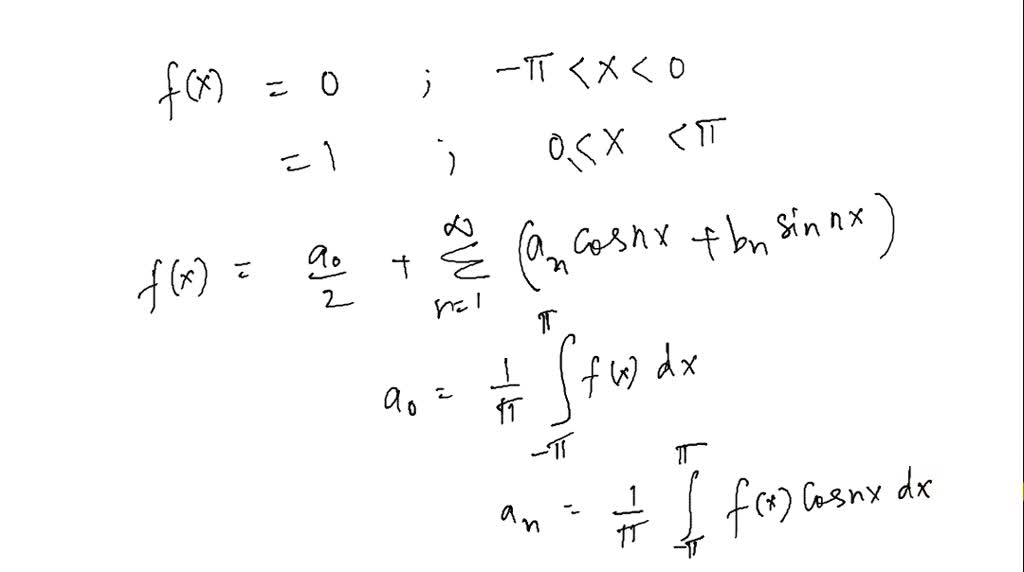 f(x) = 0 ; -π < x < 0
= 1 ; 0 < x < π
f(x) = a₀/2 + ∑_{n=1}^{∞} (aₙ cosnx + bₙ sin nx)
a₀ = 1/π ∫_{-π}^{π} f(x) dx
aₙ = 1/π ∫_{-π}^{π} f(x) cosnx dx